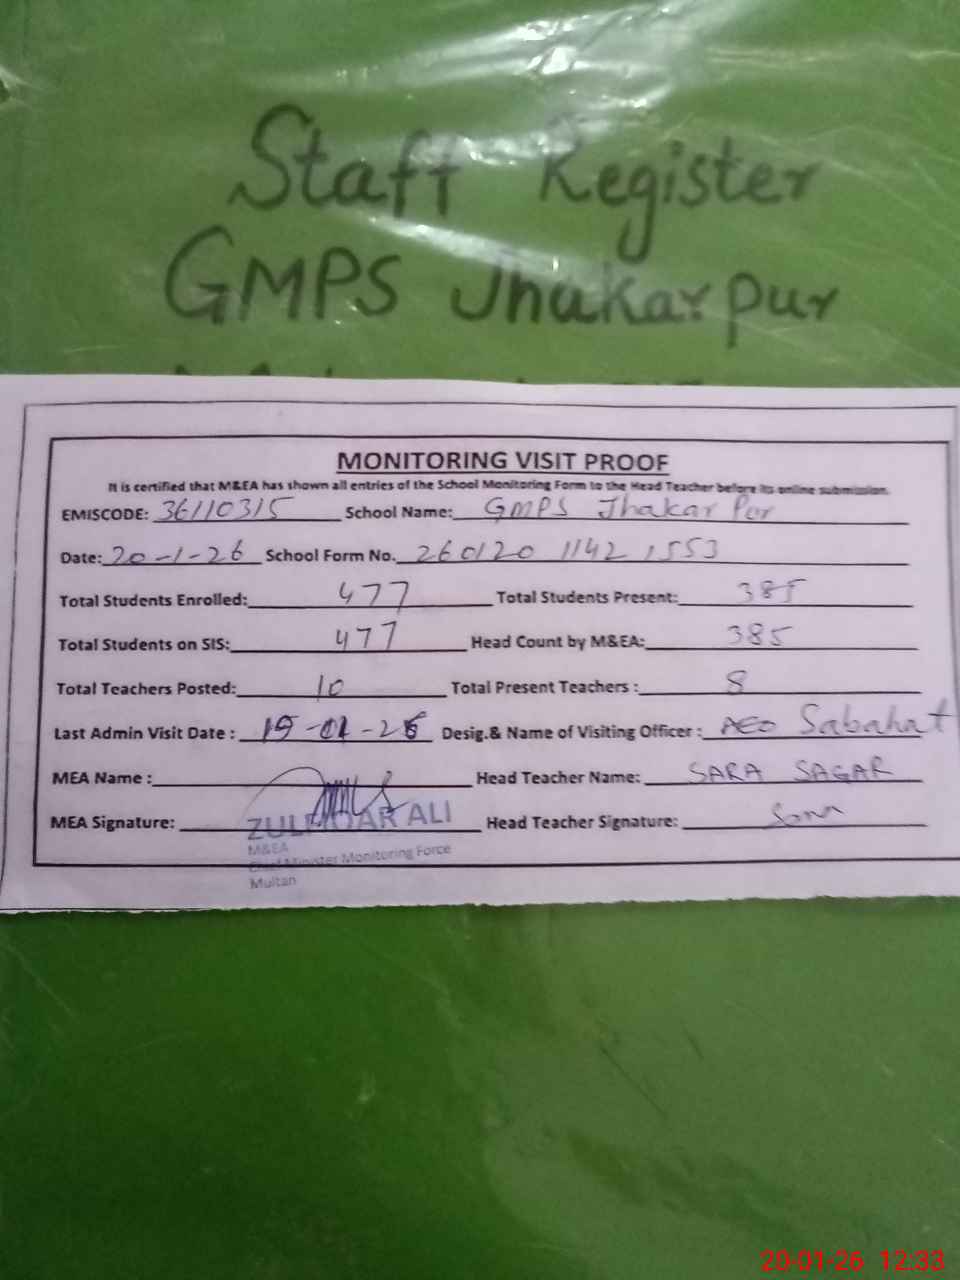 Staff Register
GMPS Jhakarpur
MONITORING VISIT PROOF
It is certified that M&EA has shown all entries of the School Monitoring Form to the Head Teacher before its online submission.
EMISCODE: 36110315 School Name: GMPS Jhakar Pur
Date: 20-1-26 School Form No. 260120 1142 1553
Total Students Enrolled: 477 Total Students Present: 385
Total Students on SIS: 477 Head Count by M&EA: 385
Total Teachers Posted: 10 Total Present Teachers : 8
Last Admin Visit Date : 19-01-26 Desig.& Name of Visiting Officer : AEO Sabahat
MEA Name : Head Teacher Name: SARA SAGAR
MEA Signature: ALI Head Teacher Signature:
M&EA
Chief Minister Monitoring Force
Multan
20-01-26 12:33